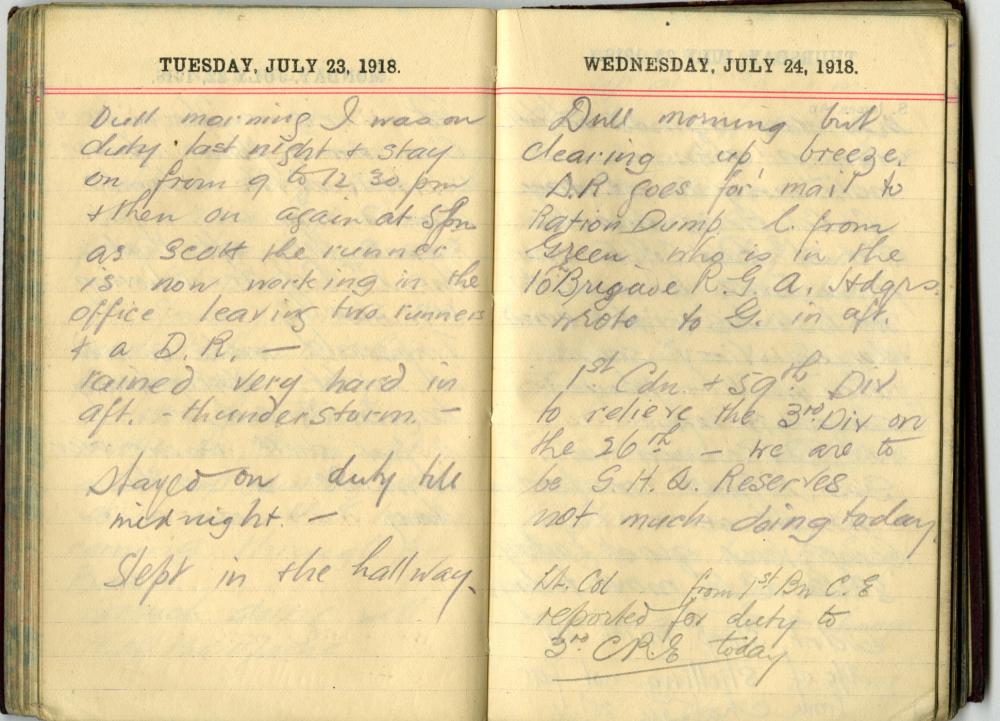 TUESDAY, JULY 23, 1918.
Dull morning I was on
duty last night & stay
on from 9 to 12 30 pm
& then on again at 5 pm
as Scott the runner
is now working in the
office leaving two runners
& a D. R. —
rained very hard in
aft. - thunderstorm. -
Stayed on duty till
midnight. —
Slept in the hallway.
WEDNESDAY, JULY 24, 1918.
Dull morning but
clearing up breeze.
D.R goes for mail to
Ration Dump. L. from
Green who is in the
10th Brigade R. G. A. Hdqrs.
wrote to G. in aft.
1st Cdn. & 59th Div
to relieve the 3rd Div on
the 26th — we are to
be G. H. Q. Reserves
not much doing today
Lt. Col from 1st Bn C. E
reported for duty to
3rd C.R.E today